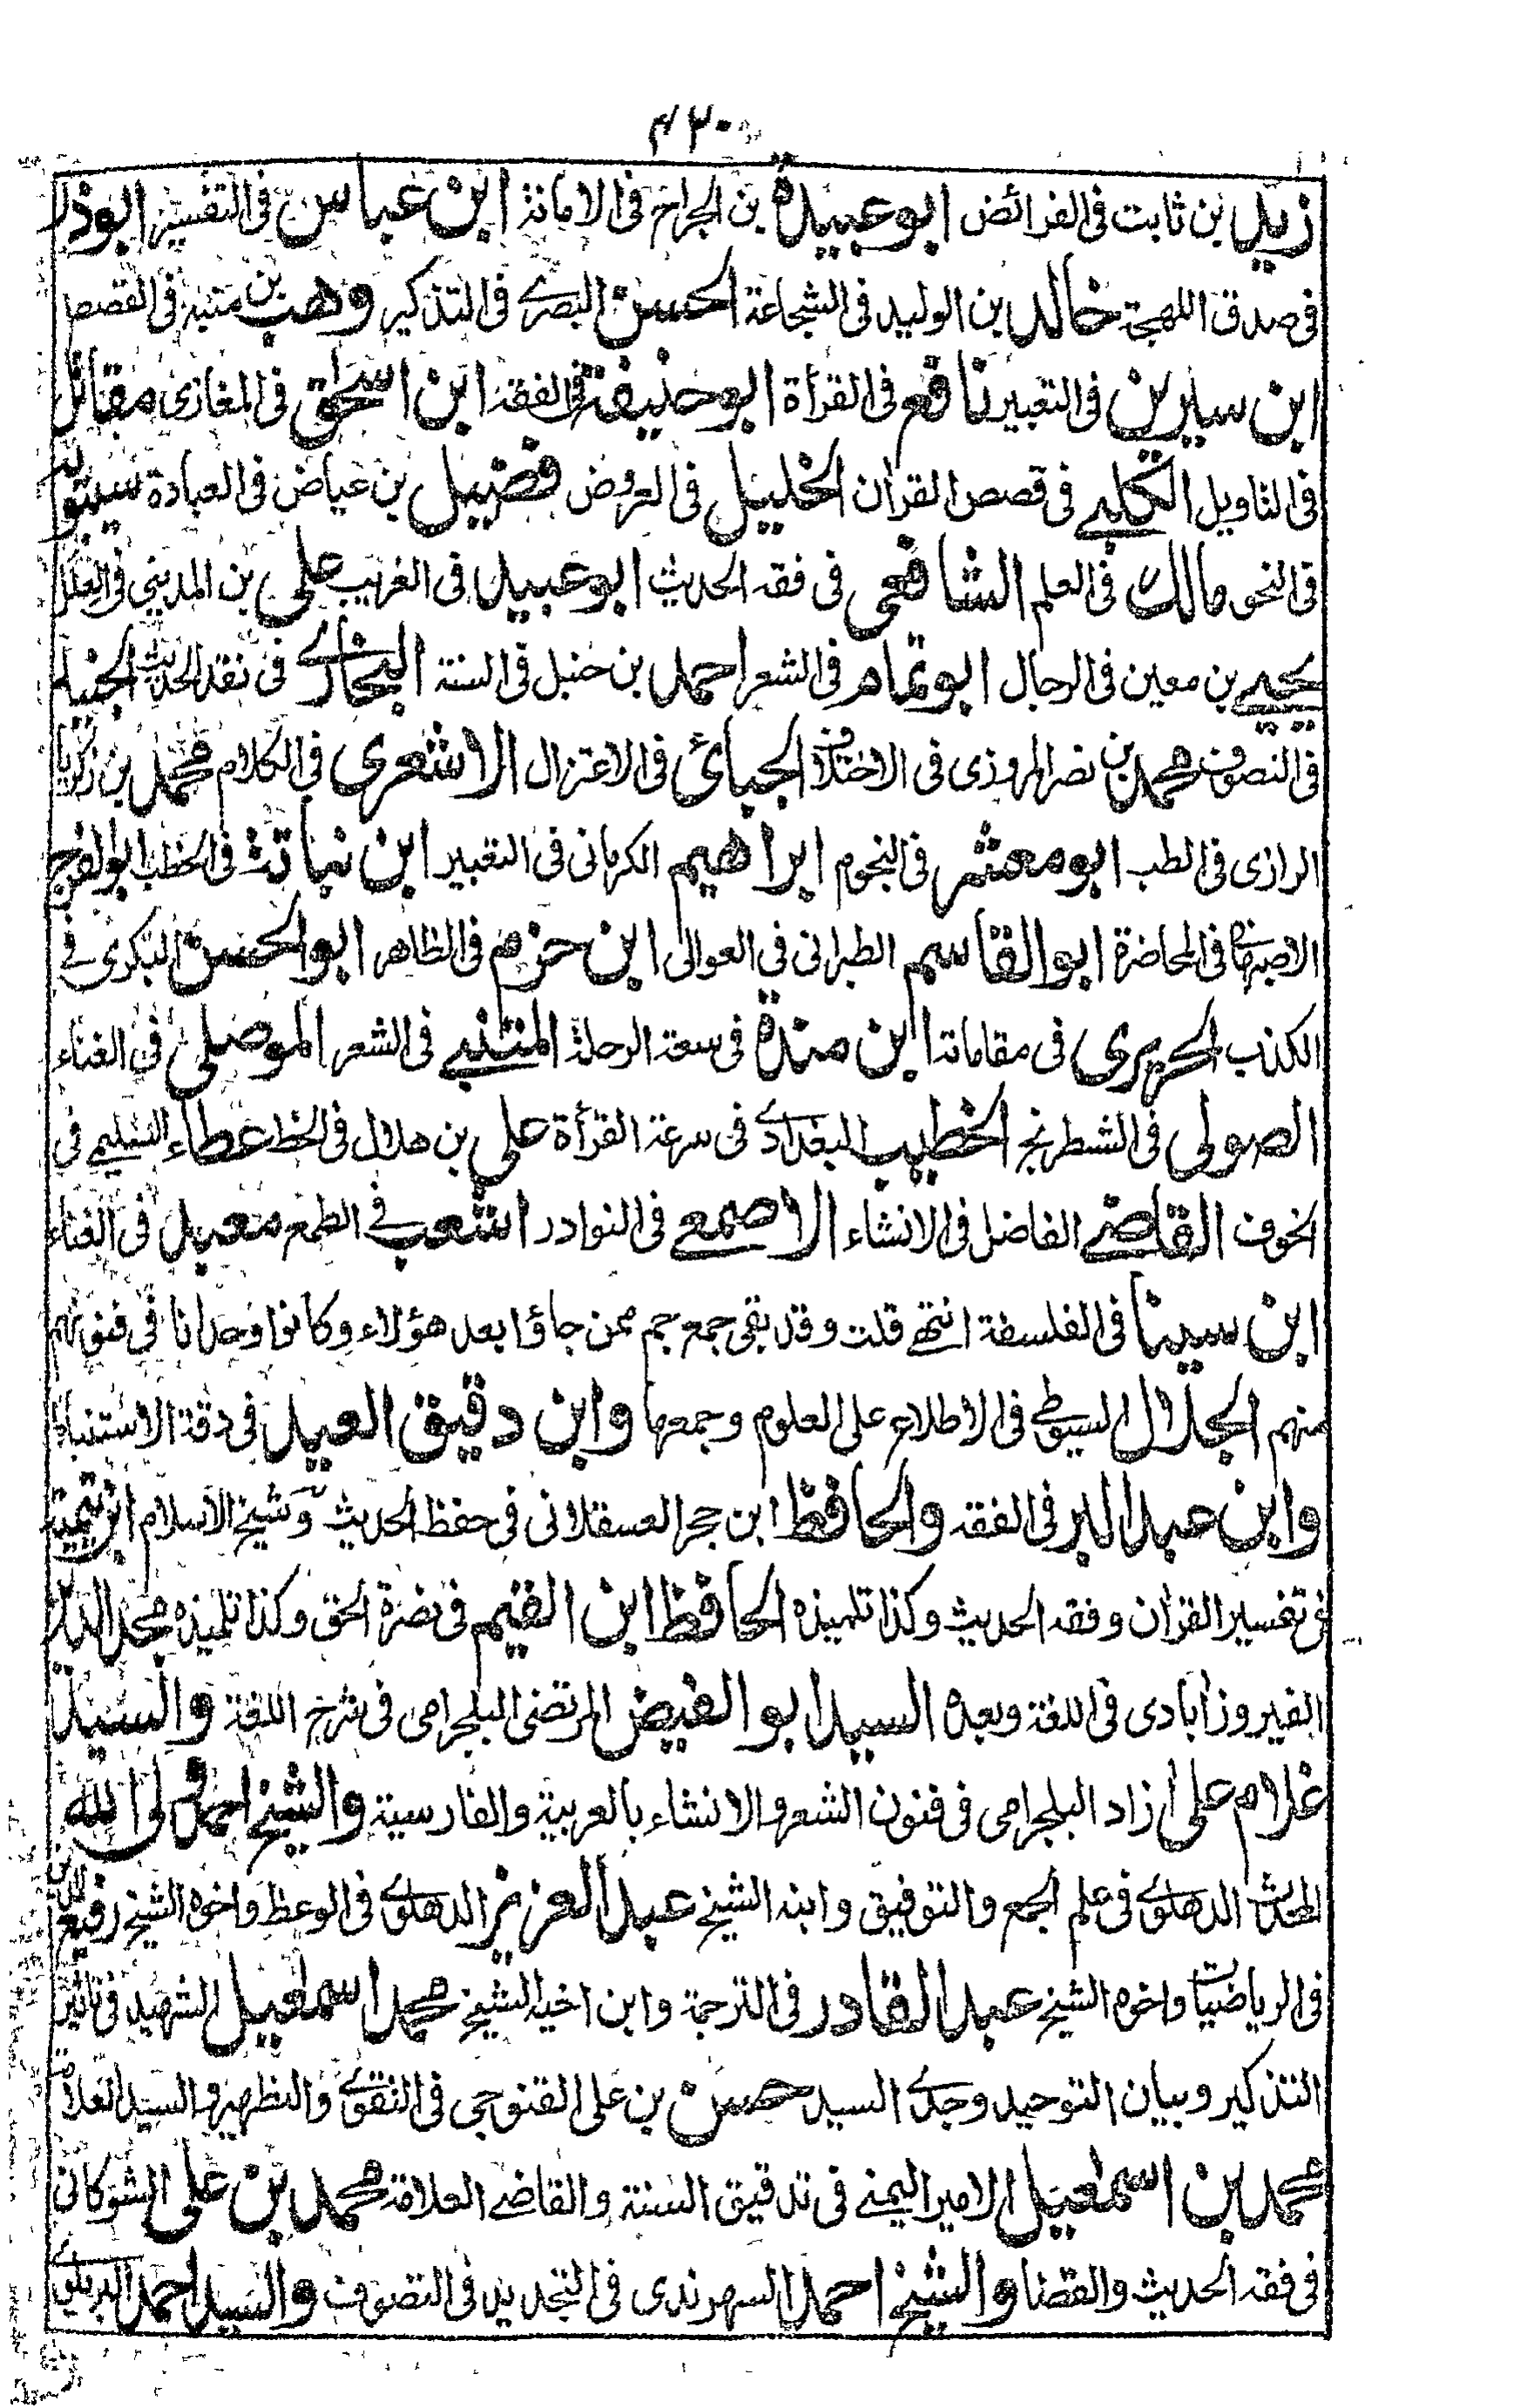 ٤٢٠
زيد بن ثابت فى الفرائض ابو عبيدة بن الجراح فى الامانة ابن عباس فى التفسير ابوذر
فى صدق اللهجة خالد بن الوليد فى الشجاعة الحسن البصرے فى التذكير وهب بن منبه فى القصص
ابن سيرين فى التعبير نافع فى القرأة ابو حنيفة فى الفقه ابن اسحق فى المغازى مقاتل
فى التاويل الكلبے فى قصص القران الخليل فى العروض فضيل بن عياض فى العبادة سيبويه
فى النحو مالك فى العلم الشافعى فى فقه الحديث ابو عبيد فى الغريب على بن المدينى فى العلل
يحيے بن معين فى الرجال ابو تمام فى الشعر احمد بن حنبل فى السنة البخارے فى نقد الحديث الجنيد
فى التصوف محمد بن نصر المروزى فى الاختلاف الجبائ فى الاعتزال الاشعرى فى الكلام محمد بن زكريا
الرازى فى الطب ابو معشر فى النجوم ابراهيم الكرمانى فى التعبير ابن نباتة فى الخطب ابو الفرج
الاصبهانى فى المحاضرة ابو القاسم الطبرانى فى العوالى ابن حزم فى الظاهر ابو الحسن البكرى فے
الكذب الحريرى فى مقاماته ابن مندة فى سعة الرحلة المتنبے فى الشعر الموصلى فى الغناء
الصولى فى الشطرنج الخطيب البغدادے فى سرعة القرأة على بن هلال فى الخط عطاء السليمے فى
الخوف القاضے الفاضل فى الانشاء الاصمعے فى النوادر اشعب فے الطمع معبد فى الغناء
ابن سينا فى الفلسفة انتهے قلت وقد بقى جمع جم ممن جاؤا بعد هؤلاء وكانوا وحدانا فى فنونهم
منهم الجلال السيوطے فى الاطلاع على العلوم وجمعها وابن دقيق العيد فى دقة الاستنباط
وابن عبد البر فى الفقه والحافظ ابن حجر العسقلانى فى حفظ الحديث وشيخ الاسلام ابن تيمية
فى تفسير القران وفقه الحديث وكذا تلميذه الحافظ ابن القيم فى نصرة الحق وكذا تلميذه مجد الدين
الفيروزآبادى فى اللغة وبعده السيد ابو الفيض المرتضى البلجرامى فى شرح اللغة والسيد
غلام على آزاد البلجرامى فى فنون الشعر والانشاء بالعربية والفارسية والشيخ احمد ولى الله
المحدث الدهلوے فى علم الجمع والتوفيق وابنه الشيخ عبد العزيز الدهلوے فى الوعظ واخوه الشيخ رفيع الدين
فى الرياضيات واخوه الشيخ عبد القادر فى الترجمة وابن اخيه الشيخ محمد اسمعيل الشهيد فى تاثير
التذكير وبيان التوحيد وجدے السيد حسن بن على القنوجى فى التقوے والتطهير والسيد العلامة
محمد بن اسمعيل الامير اليمنے فى تدقيق السنة والقاضے العلامة محمد بن على الشوكانى
فى فقه الحديث والقضا والشيخ احمد السهرندى فى التجديد فى التصوف والسيد احمد البريلوے